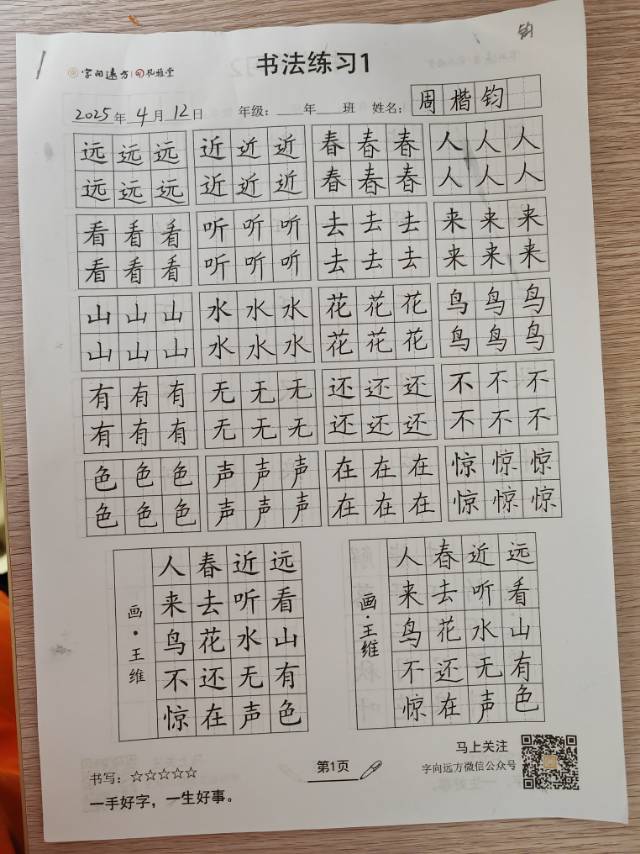 钧
字向远方 礼雅堂
书法练习1
2025年4月12日 年级:____年____班 姓名: 周楷钧
远远远 近近近 春春春 人人人
远远远 近近近 春春春 人人人
看看看 听听听 去去去 来来来
看看看 听听听 去去去 来来来
山山山 水水水 花花花 鸟鸟鸟
山山山 水水水 花花花 鸟鸟鸟
有有有 无无无 还还还 不不不
有有有 无无无 还还还 不不不
色色色 声声声 在在在 惊惊惊
色色色 声声声 在在在 惊惊惊
远看山有色
近听水无声
春去花还在
人来鸟不惊
画·王维
远看山有色
近听水无声
春去花还在
人来鸟不惊
画·王维
书写:☆☆☆☆☆
一手好字，一生好事。
第1页
马上关注
字向远方微信公众号